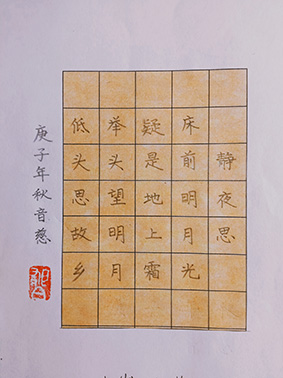 静夜思
床前明月光
疑是地上霜
举头望明月
低头思故乡
庚子年秋音慈